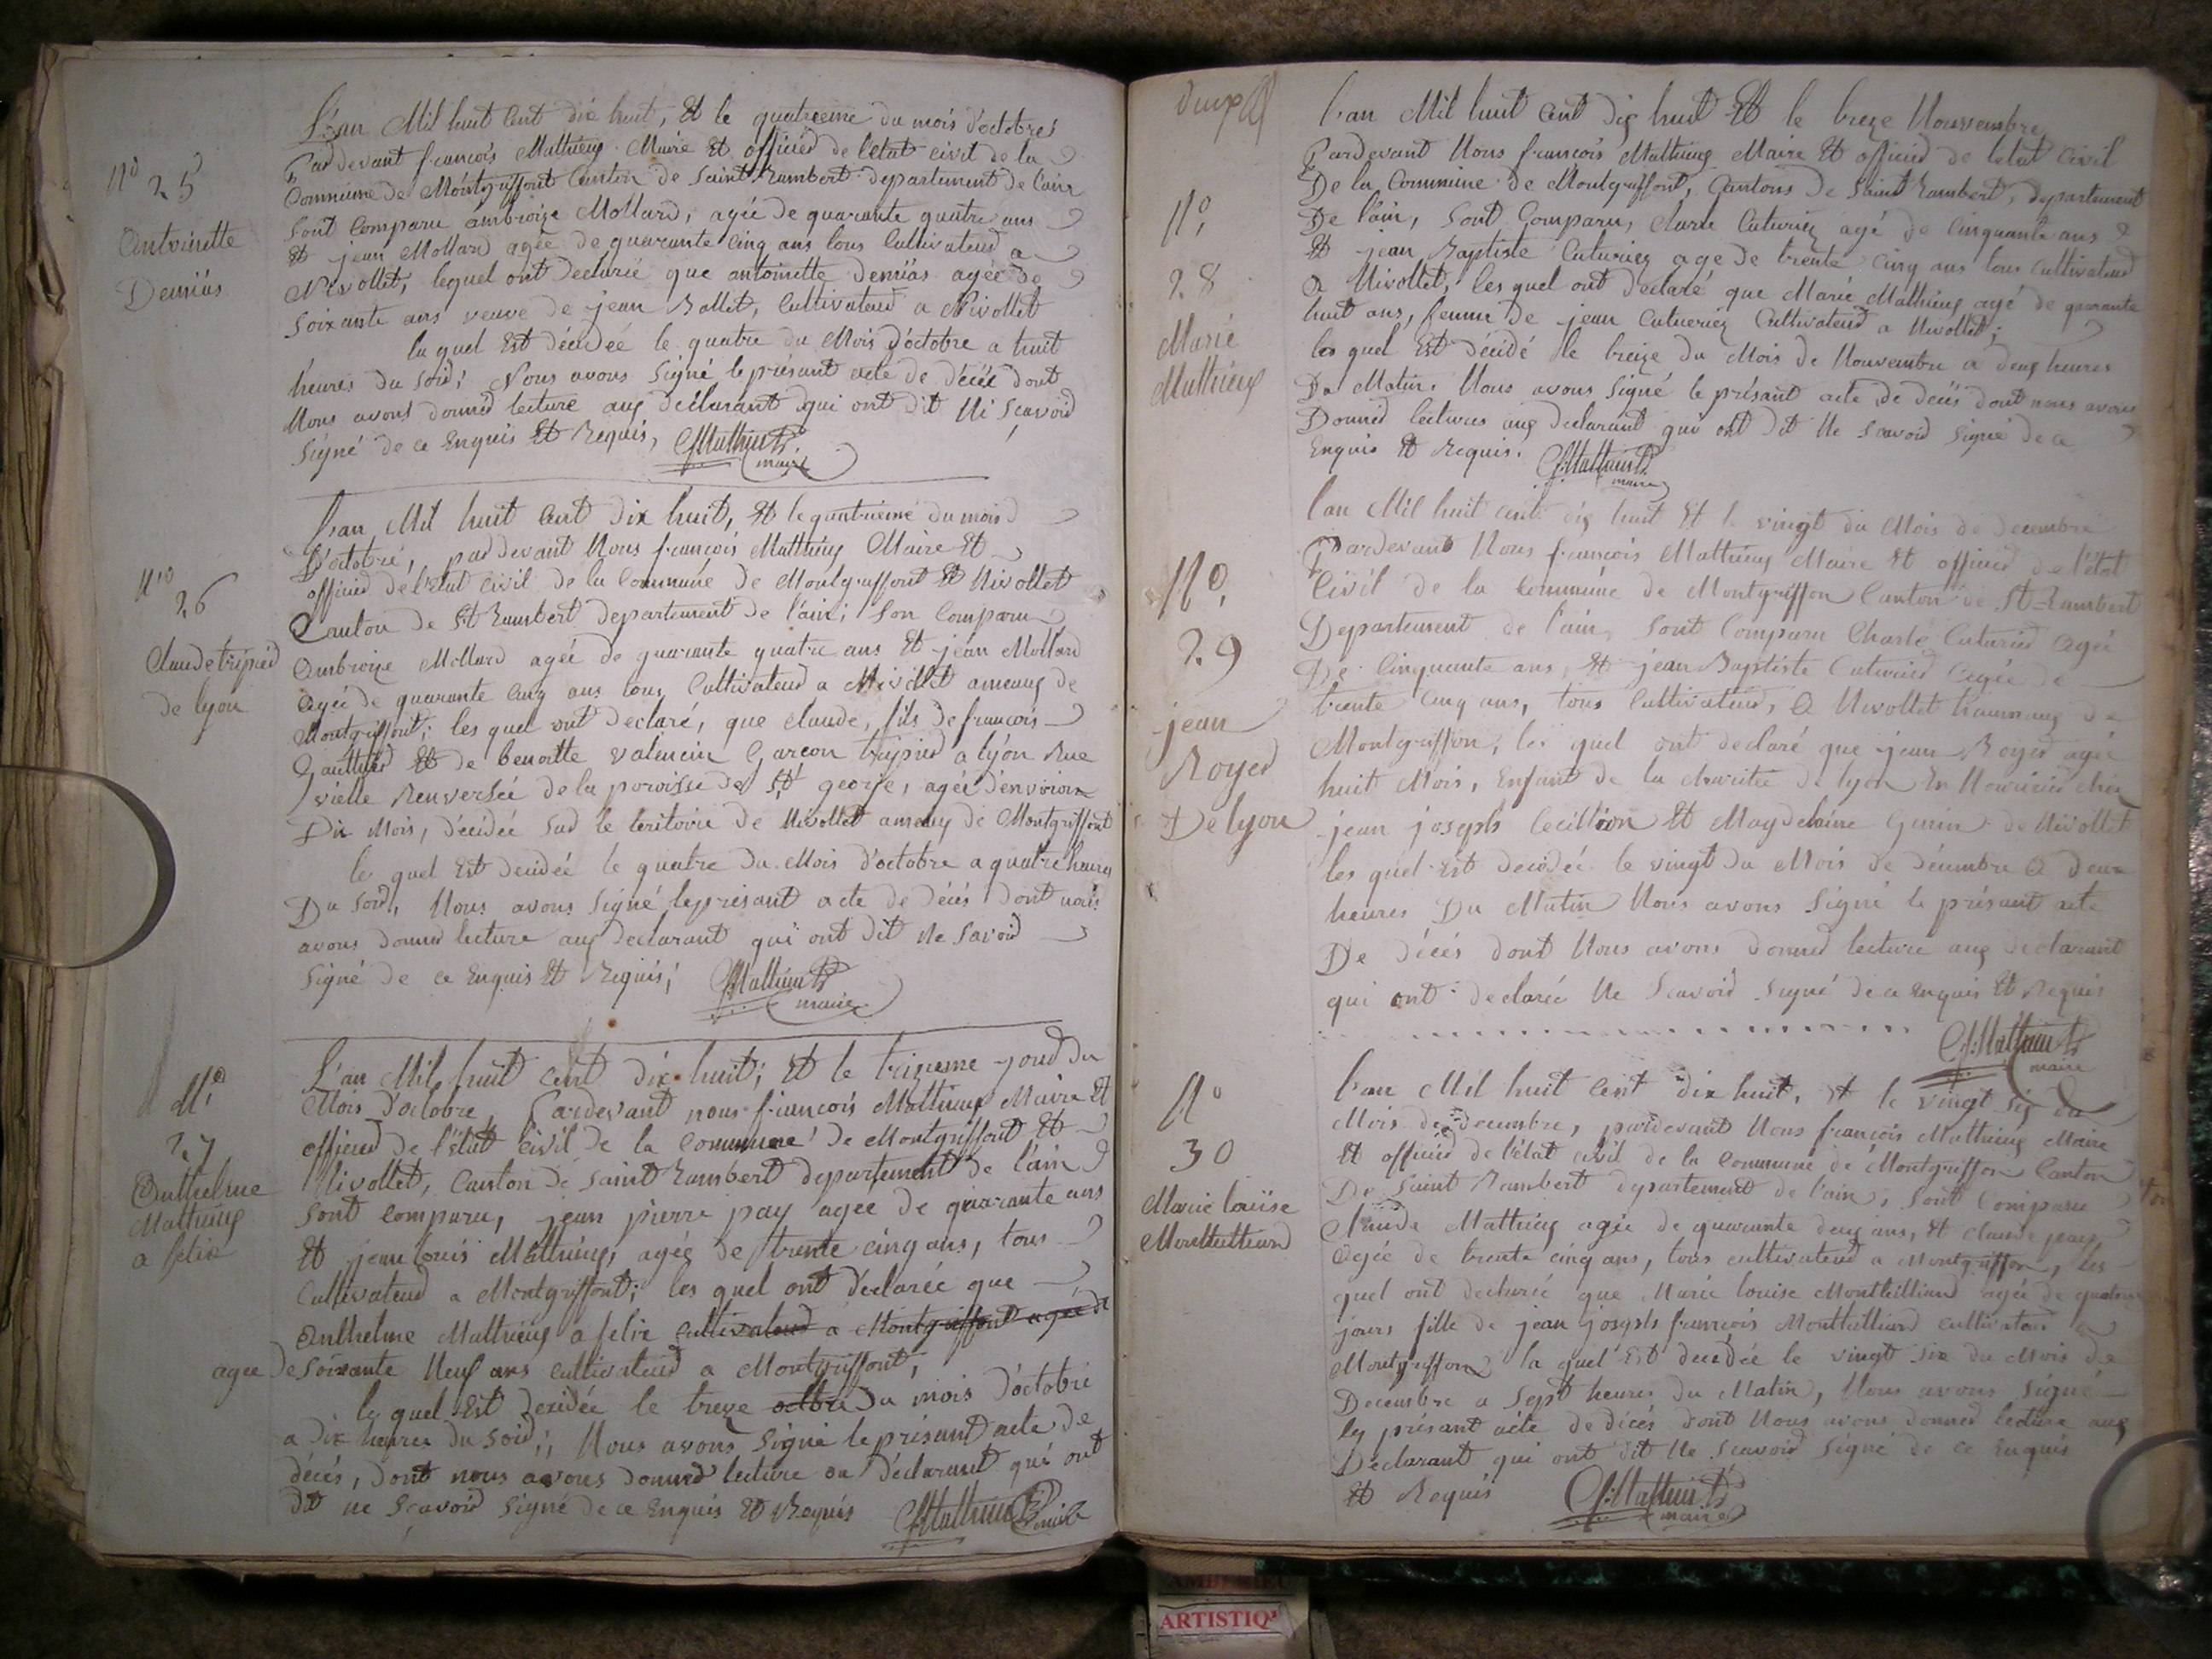 No 25
Antoinette
Demïas
L'an Mil huit Cent dix huit, Et le quatrieme du mois d'octobre
Pardevant françois Mathieux Maire Et officied de l'état civil de la
Commune de Montgriffont Canton de Saint Rambert departement de l'ain
Sont Comparu ambroize Mollard, agée de quarante quatre ans
Et jean Mollard agée de quarante Cinq ans tous Cultivateud a
Nivollet, lequel ont declarée que antoinette demïas agée de
Soixante ans veuve de jean Ballet, Cultivateud a Nivollet
la quel Est décédée le quatre du Mois d'octobre a huit
heures du Soid; Nous avons Signé le présant acte de décée dont
Nous avons donned lecture aux declarant qui ont dit Ni Scavoid
Signé de ce Enquis Et Requis, fMathieu
maire
No 26
Claude tripied
de lyon
L'an Mil huit Cent dix huit, Et le quatrieme du mois
D'octobre, pardevant Nous françois Mathieux Maire Et
officied de l'état Civil de la Commune de Montgriffont Et Nivollet
Canton de St Rambert departement de l'ain; Son Comparu
Ambroize Mollard agée de quarante quatre ans Et jean Mollard
agée de quarante Cinq ans tous Cultivateud a Nivollet ameaux de
Montgriffont; les quel ont declaré, que claude, fils de françois
Gauthied Et de benoitte valencin Garcon tripied a lyon Rue
vielle Renversée de la poroisse de St george, agée d'envoiron
Dix Mois, décédée Sud le teritoire de Nivollet ameaux de Montgriffont
le quel Est decedée le quatre du Mois d'octobre a quatre heures
Du Soid, Nous avons Signé le présant acte de décés dont nous
avons donned lecture aux declarant qui ont dit Ne Savoid
Signé de ce Enquis Et Requis; fMathieu
maire
No 27
Anthelme
Mathieux
a felix
L'an Mil huit Cent dix huit; Et le trizieme joud du
Mois d'octobre, Pardevant nous françois Mathieux Maire Et
officied de l'état Civil de la Commune de Montgriffont Et
Nivollet, Canton de Saint Rambert departement de l'ain
Sont comparu, jean pierre pay agee de quarante ans
Et jean louis Mathieux, agée de trente cinq ans, tous
Cultivateud a Montgriffont; les quel ont declarée que
Anthelme Mathieux a felix cultivateud a Montgriffont agée de
agee de Soixante Neuf ans cultivateud a Montgriffont,
le quel Est decédée le treze octbre du mois d'octobre
a dix heures du Soid;, Nous avons Signé le présant acte de
décés, dont nous avons donned lecture au déclarant qui ont
dit ne Scavoid Signé de ce Enquis Et Requis fMathieu maire
No
28
Marie
Mathieux
L'an Mil huit Cent dix huit Et le treze Nouvembre
Pardevant Nous françois Mathieux Maire Et officied de l'état Civil
De la Commune de Montgriffont, Cantons de Saint Rambert, departement
De l'ain, Sont Comparu, Charle Cuturiez agé de Cinquante ans
Et jean Baptiste Cuturiez age de trente Cinq ans tous cultivateud
a Nivollet, les quel ont declaré que Marie Mathieux agé de quarante
huit ans, femme de jean Cutueriez Cultivateud a Nivollet;
la quel Est décidé le treize du Mois de Nouvembre a deux heures
Du Matin. Nous avons Signé le présant acte de decés dont nous avons
Donned lectures aux declarant qui ont dit Ne Scavoid Signé de ce
Enquis Et Requis. fMathieu
maire
No
29
jean
Royed
De lyon
L'an Mil huit Cent dix huit Et le vingt du Mois de Decembre
Pardevant Nous françois Mathieux Maire Et officied de l'état
Civil de la Commune de Montgriffon Canton de St-Rambert
Departement de l'ain, Sont Comparu Charle Cuturied agée
De Cinquante ans, Et jean Baptiste Cuturied agée de
trente Cinq ans, tous Cultivateud, a Nivollet haumaux de
Montgriffon, les quel ont declaré que jean Royed agée
huit Mois, Enfant de la charitée de lyon En Nourisid chez
jean joseph Cecillion Et Magdelaine Genin de Nivollet
les quel Est décédée le vingt du Mois de décembre a deux
heures Du Matin Nous avons Signé le présant acte
De décés dont Nous avons donned lecture aux declarant
qui ont declarée Ne Scavoid Signé de ce Enquis Et Requis
fMathieu
maire
No
30
Marie louise
Montheilliard
L'an Mil huit Cent dix huit, Et le vingt Six du
Mois de decembre, pardevant Nous françois Mathieux Maire
Et officied de l'état civil de la Commune de Montgriffon Canton
De Saint Rambert departement de l'ain, Sont Comparu
Claude Mathieux agée de quarante deux ans, Et Claude pay
agée de trente cinq ans, tous cultivateud a Montgriffon, les
quel ont declarée que Marie louise Montheilliard agée de quatre
jours fille de jean joseph françois Montheilliard cultivateur a
Montgriffon la quel Est decédée le vingt Six du Mois de
Decembre a Sept heures du Matin, Nous avons Signé
le présant acte de décés dont Nous avons donned lecture aux
Declarant qui ont dit Ne Scavoid Signé de ce Enquis
Et Requis fMathieu
maire
ARTISTIQ